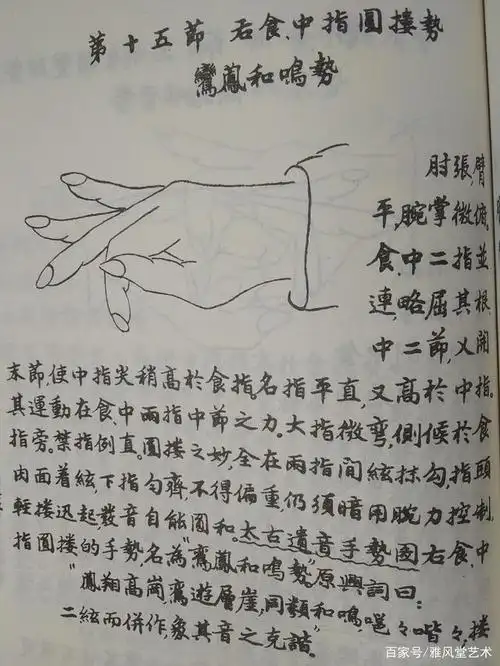 第十五節 右食、中指圓摟勢
鸞鳳和鳴勢
肘張,臂
平,腕掌微俯。
食、中二指並
連,略屈其根
中二節,乂開
末節,使中指尖稍高於食指。名指平直,又高於中指。
其運動在食、中兩指中節之力。大指微彎,側倚於食
指旁。禁指例直。圓摟之妙,全在兩指間絃抹勾,指頭
肉面着絃,下指勻齊不得偏重仍須暗用腕力控制,
輕摟迅起數音自能圓和。太古遺音手勢圖右食、中
指圓摟的手勢名為“鸞鳳和鳴勢”。原興詞曰:
“鳳翔高崗,鸞遊層崖,同類和鳴,嗈々喈々,摟
二絃而併作,象其音之克諧。”
百家号/雅风堂艺术